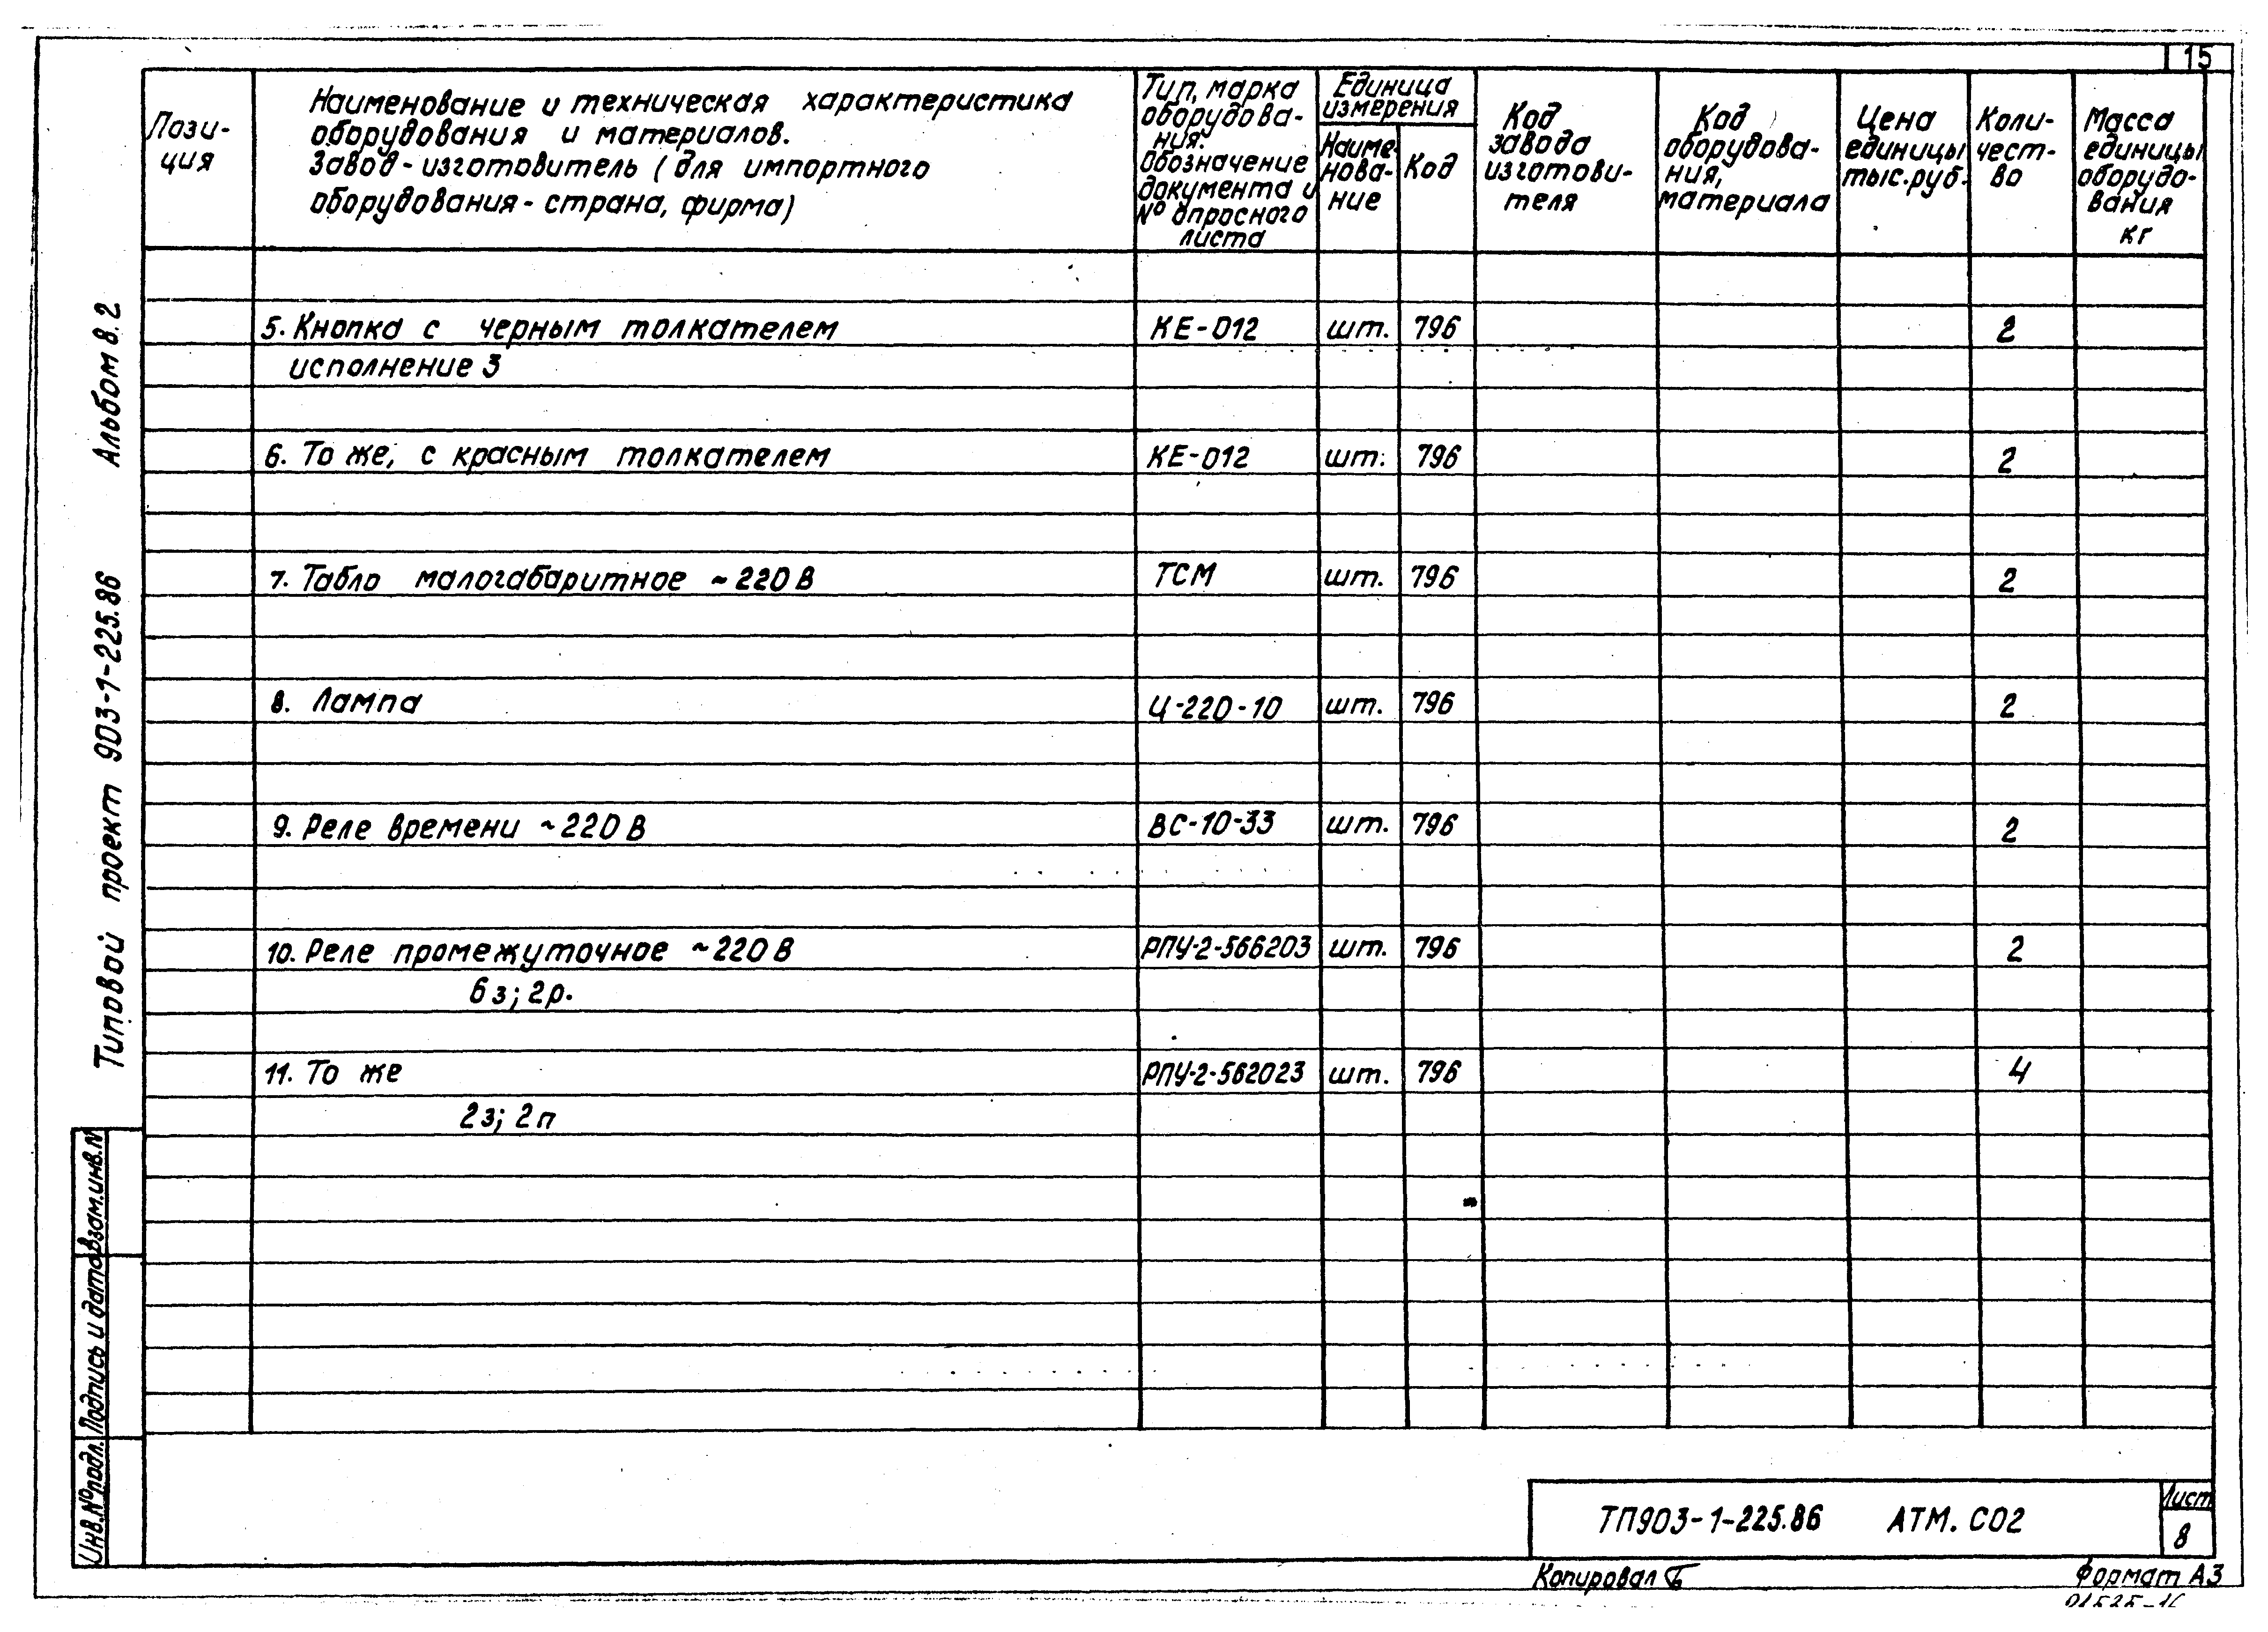 15
Пози-
ция
Наименование и техническая характеристика
оборудования и материалов.
Завод-изготовитель (для импортного
оборудования - страна, фирма)
Тип, марка
оборудова-
ния.
Обозначение
документа и
№ опросного
листа
Единица
измерения
Наиме-
нова-
ние
Код
Код
завода
изготови-
теля
Код
оборудова-
ния,
материала
Цена
единицы
тыс.руб.
Коли-
чест-
во
Масса
единицы
оборудо-
вания
кг
5. Кнопка с черным толкателем КЕ-012 шт. 796 2
исполнение 3
6. То же, с красным толкателем КЕ-012 шт. 796 2
7. Табло малогабаритное ~220В ТСМ шт. 796 2
8. Лампа Ц-220-10 шт. 796 2
9. Реле времени ~220В ВС-10-33 шт. 796 2
10. Реле промежуточное ~220В РПУ-2-566203 шт. 796 2
6з; 2р.
11. То же РПУ-2-562023 шт. 796 4
2з; 2п
Типовой проект 903-1-225.86 Альбом 8.2
Взам.инв.N
Подпись и дата
Инв.№подл.
ТП903-1-225.86 АТМ. СО2
Лист
8
Копировал
Формат А3